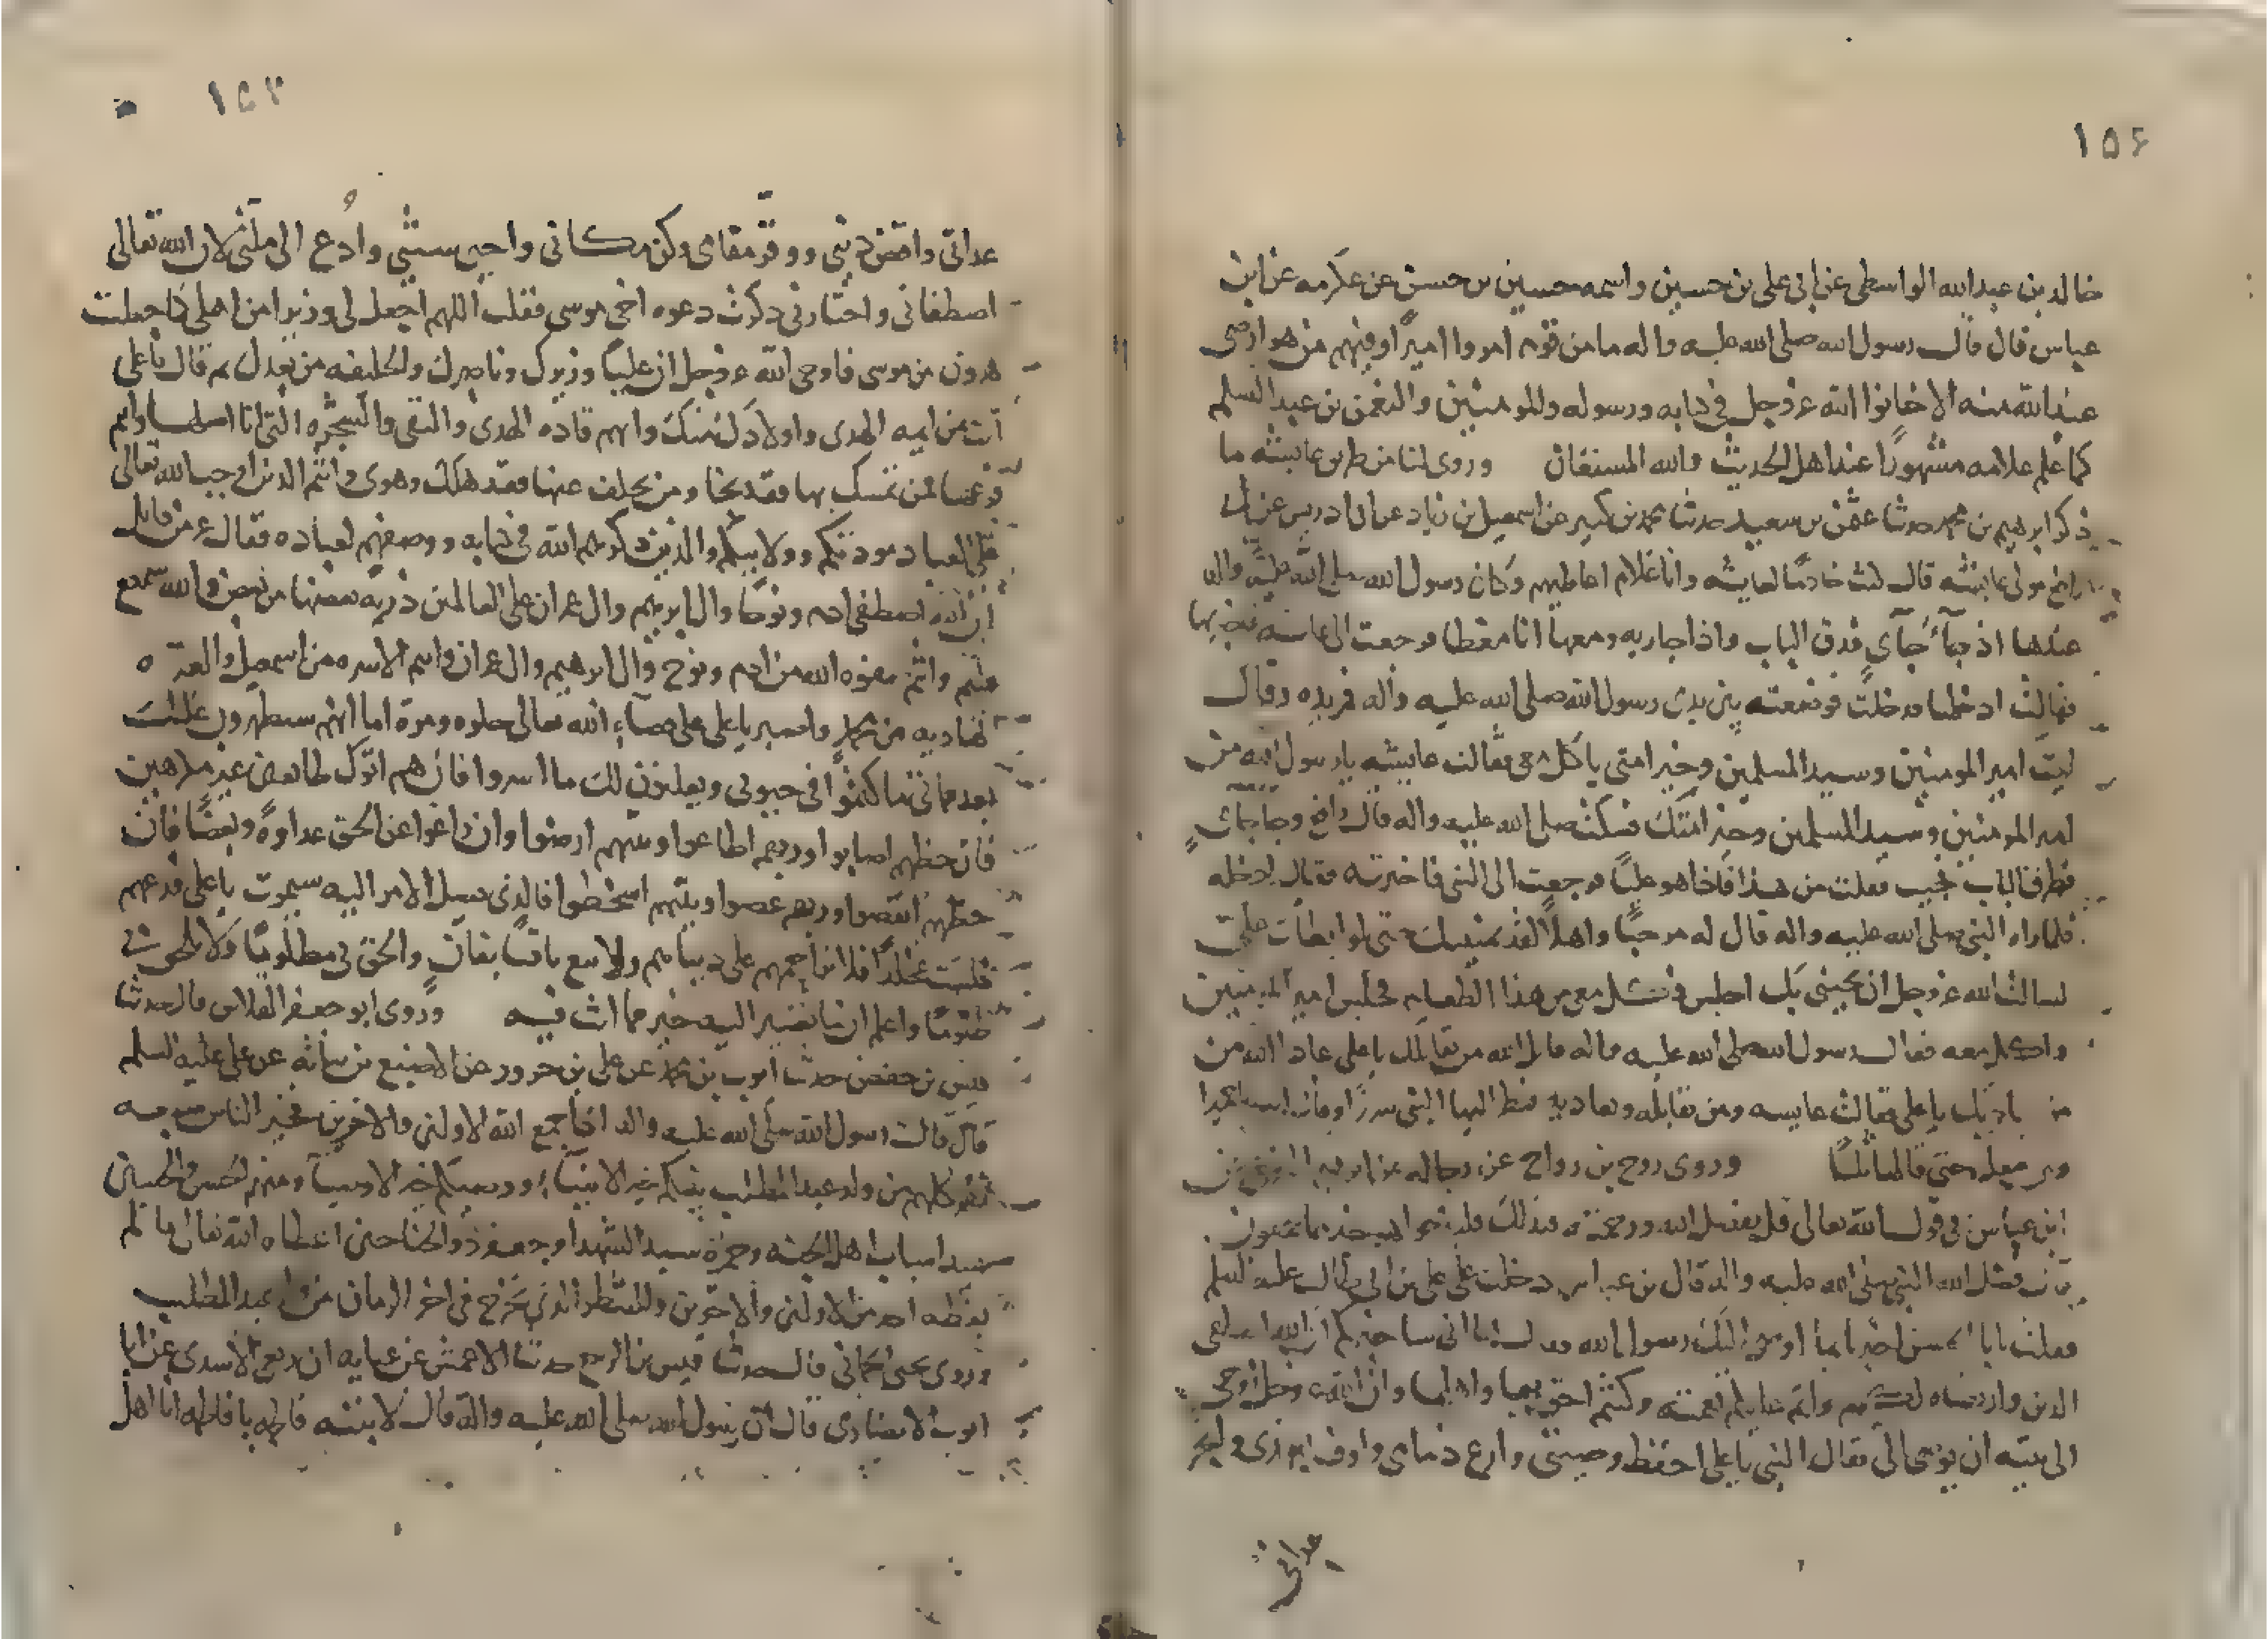 ١٥۶
خالد بن عبدالله الواسطى عن ابى على بن حسين واسمه حسين بن حسن عن عكرمه عن ابن
عباس قال قال رسول الله صلى الله عليه واله ما من قوم امروا اميرًا وفيهم من هو ارضى
عند الله منه الا خانوا الله عز وجل فى كتابه ورسوله والمومنين والنعمن بن عبد السلم
كما علم علامه مشهورًا عند اهل الحديث والله المستعان وروى لنا من طريق عايشه ما
ذكر ابرهيم بن محمد حدثنا عثمن بن سعيد حدثنا محمد بن كبير عن اسمعيل بن زياد عن ابى ادريس عن
رافع مولى عايشه قال كنت خادمًا لعايشه وانا غلام اعاطيهم وكان رسول الله صلى الله عليه واله
عندها اذ جآء جآىٍ فدق الباب واذا جاريه ومعها انا مغطا فرجعت الى عايشه فاخبرتها
فقالت ادخلها فدخلت فوضعته بين يدى رسول الله صلى الله عليه واله فمد يده وقال
ليت امير المومنين وسيد المسلمين وخير امتى ياكل معى فقالت عايشه يا رسول الله من
امير المومنين وسيد المسلمين وخير امتك فسكت صلى الله عليه واله قال رافع وجا جاىٍ
فطرق الباب فجيت فقلت من هذا فاذا هو عليًا فرجعت الى النبى فاخبرته فقال ادخله
فلما راه النبى صلى الله عليه واله قال له مرحبًا واهلًا لقد تمنيتك حتى لو ابطات على
لسالت الله عز وجل ان يجينى بك اجلس فكل معى من هذا الطعام فجلس امير المومنين
واكل معه فقال رسول الله صلى الله عليه واله قاتل الله من يقاتلك يا على عادا الله من
يعاديك يا على فقالت عايشه ومن يقاتله ويعاديه فنظر اليها النبى
ومن معك حتى قالها ثلثًا وروى روح بن رواح عن رجاله عن ابرهيم
ابن عباس فى قول الله تعالى قل بفضل الله ورحمته فبذلك فليفرحوا هو خير مما يجمعون
فضل الله النبى صلى الله عليه واله قال بن عباس دخلت على على بن ابى طالب عليه السلم
فقلت يا ابا الحسن اخبرنا بما اوصى اليك رسول الله فقال انى ساخبركم ان الله اصطفى
الدين وارتضاه لكم واتم عليكم نعمته وكنتم احق بها واهلها وان الله عز وجل اوحى
الى نبيه ان يوصى الى فقال النبى يا على احفظ وصيتى وارع ذمامى واوف وانجز
عداتى
١٥٣
عداتى واقض دينى ووقّر مقامى وكن مكانى واحى سنتى وادع الى ملتى لان الله تعالى
اصطفانى واختارنى ذكرت دعوه اخى موسى فقلت اللهم اجعل لى وزيرا من اهلى كما جعلت
هرون من موسى فاوحى الله عز وجل ان عليًا وزيرك وناصرك والخليفه من بعدك ثم قال يا على
انت من ايمه الهدى واولادك منك وانهم قاده الهدى والتقى والشجره التى انا اصلها وانتم
فرعها فمن تمسك بها فقد نجا ومن تخلف عنها فقد هلك وهوى وانتم الذين اوجب الله تعالى
على العباد مودتكم وولايتكم والذين ذكرهم الله فى كتابه ووصفهم لعباده فقال عز من قايل
ان الله اصطفى ادم ونوحًا وال ابرهيم وال عمران على العالمين ذريه بعضها من بعض والله سميع
عليم وانتم صفوه الله من ادم ونوح وال ابرهيم وال عمران وانتم الاسره من اسمعيل والعتره
الهاديه من محمد واصبر يا على على قضاء الله تعالى حلوه ومره اما انهم سيظهرون عليك
بعد مماتى ما كتموا فى حيوتى ويعلنون لك ما اسروا فان هم اتوك طايعين غير
فان حظهم اصابوا وربهم اطاعوا ونبيهم ارضوا وان زاغوا عن الحق عداوةً وبغضًا فان
حظهم انتقصوا وربهم عصوا ونبيهم اسخطوا فالذى يصل الامر اليه سيموت يا على فدعهم
فلست مخلدًا فلا تزاحمهم على دنياهم ولا تبع باقيًا بفان والحق بى مظلومًا ولا تلحق بى
ظلومًا واعلم ان ما تصير اليه خير مما انت فيه وروى ابو جعفر الفلاس قال حدثنا
قيس بن حفص حدثنا ايوب بن محمد عن على بن حزور عن الاصبغ بن نباته عن على عليه السلم
قال قال رسول الله صلى الله عليه واله اذا جمع الله الاولين والاخرين فخير الناس سبعه
كلهم من ولد عبد المطلب نبيكم خير الانبياء ووصيكم خير الاوصيا ومنهم الحسن والحسين
سيدا شباب اهل الجنه وحمزة سيد الشهدا وجعفر ذو الجناحين اعطاه الله تعالى ما لم
يعطه احد من الاولين والاخرين والمنتظر الذى يخرج فى اخر الزمان من ولد عبد المطلب
وروى يحيى الحمانى قال حدثنا قيس بن الربيع حدثنا الاعمش عن عبايه ان ربعى الاسدى عن ابى
ايوب الانصارى قال ان رسول الله صلى الله عليه واله قال لابنته فاطمه يا فاطمه انا اهل